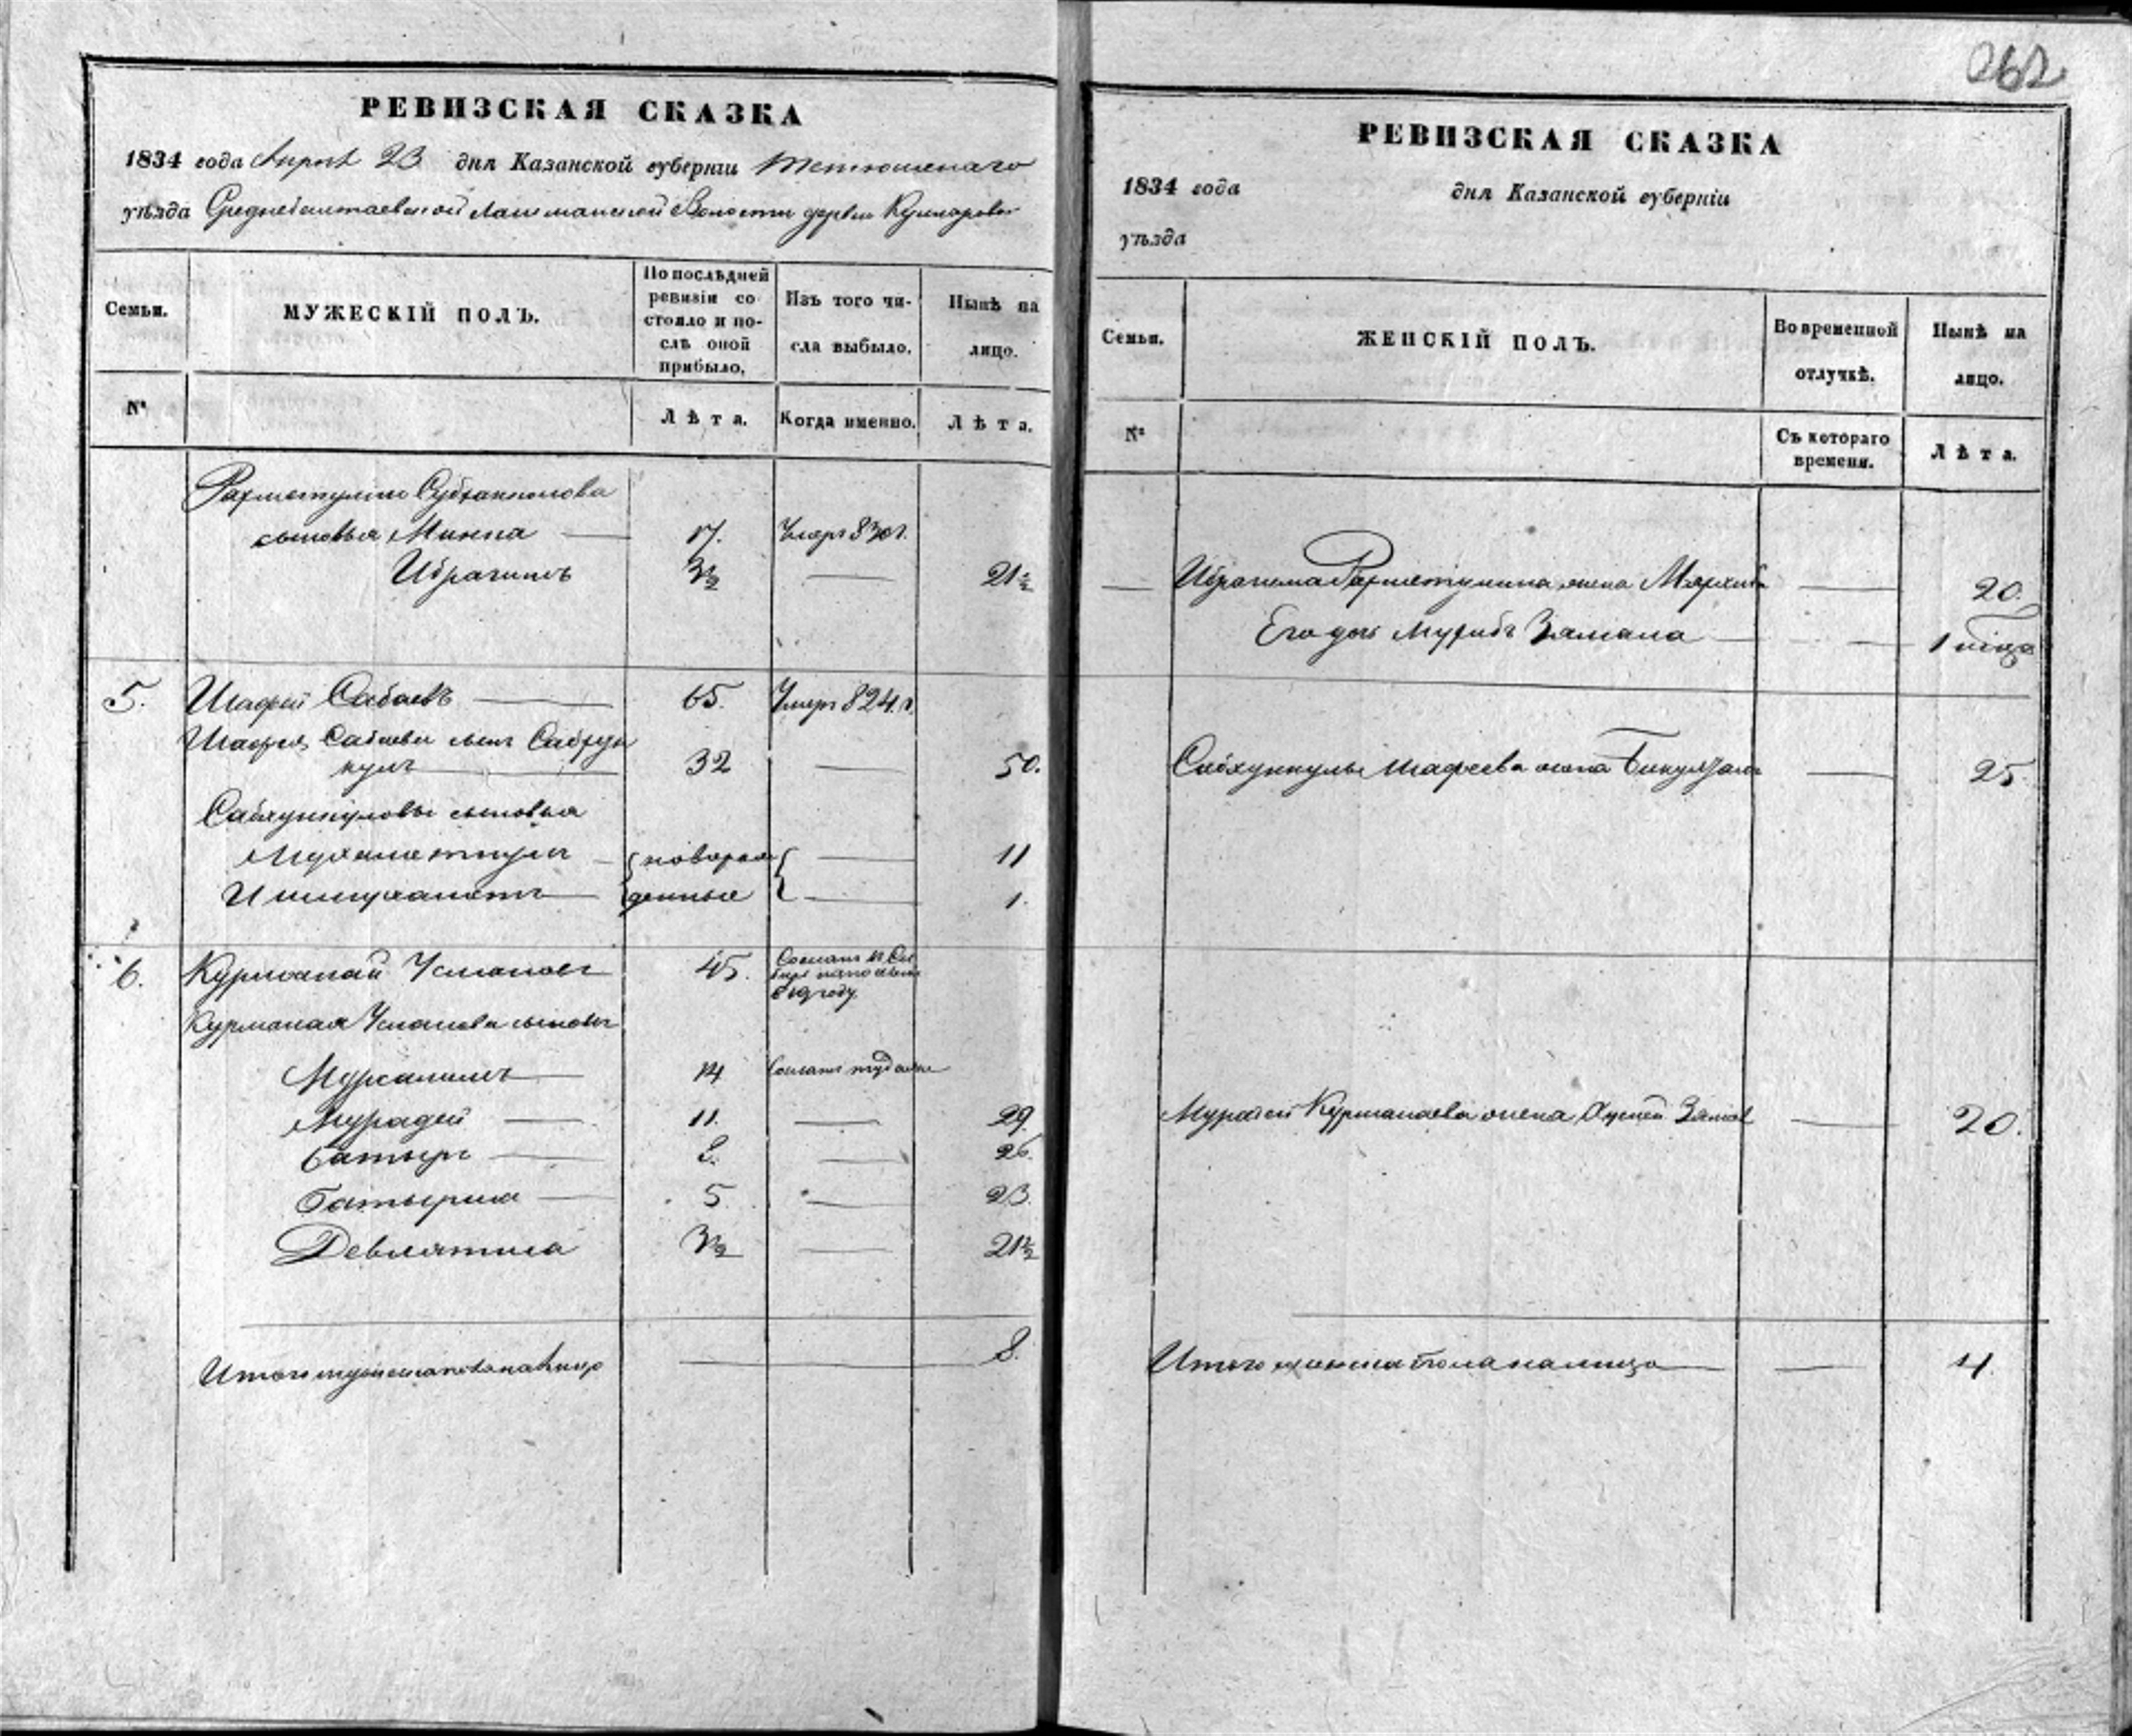 262
РЕВИЗСКАЯ СКАЗКА
1834 года Апреля 23 дня Казанской губерніи Тетюшскаго
уѣзда Среднебалтаевской Лашманской Волости деревни
Семьи.
МУЖЕСКІЙ ПОЛЪ.
По послѣдней
ревизіи со-
стояло и по-
слѣ оной
прибыло.
Изъ того чи-
сла выбыло.
Нынѣ на
лицо.
№
Лѣта.
Когда именно.
Лѣта.
сыновья Минка 17. Умеръ 830 г.
Ибрагимъ 3½ 21½
5. Шафей Сабаевъ 65. Умеръ 824. г.
Шафея Сабаева сынъ
кулъ 32 50.
сыновья
новорож 11
Ишмухаметъ денные 1.
6. Курманай Усмановъ 45. Сосланъ въ Си
бирь
году
Курманая Усманова сыновья
14 Сосланъ туда же
Мурадей 11. 29.
Батыръ 8. 26.
Батырша 5 23.
Девлятша 3½ 21½
Итого мужеска пола на лицо 8.
РЕВИЗСКАЯ СКАЗКА
1834 года дня Казанской губерніи
уѣзда
Семьи.
ЖЕНСКІЙ ПОЛЪ.
Во временной
отлучкѣ.
Нынѣ на
лицо.
№
Съ котораго
времени.
Лѣта.
Ибрагима Рахметулина жена 20.
Его дочь Замана 1
Шафеева жена 25.
Мурадей Курманаева жена 20.
Итого женска пола на лицо 4.